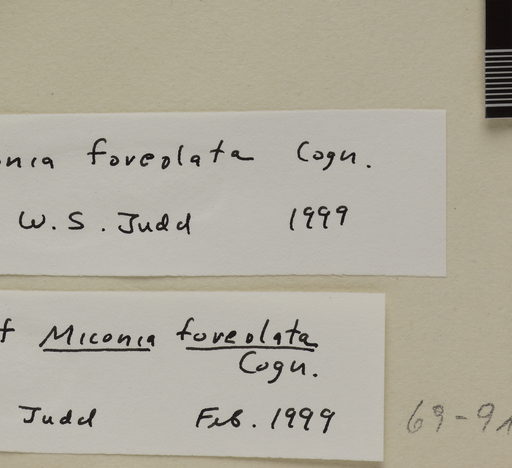 onia foveolata Cogn.
W. S. Judd 1999
f Miconia foveolata
Cogn.
Judd Feb. 1999
69-9